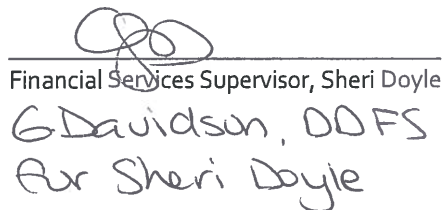 Financial Services Supervisor, Sheri Doyle
G Davidson, DDFS
for Sheri Doyle